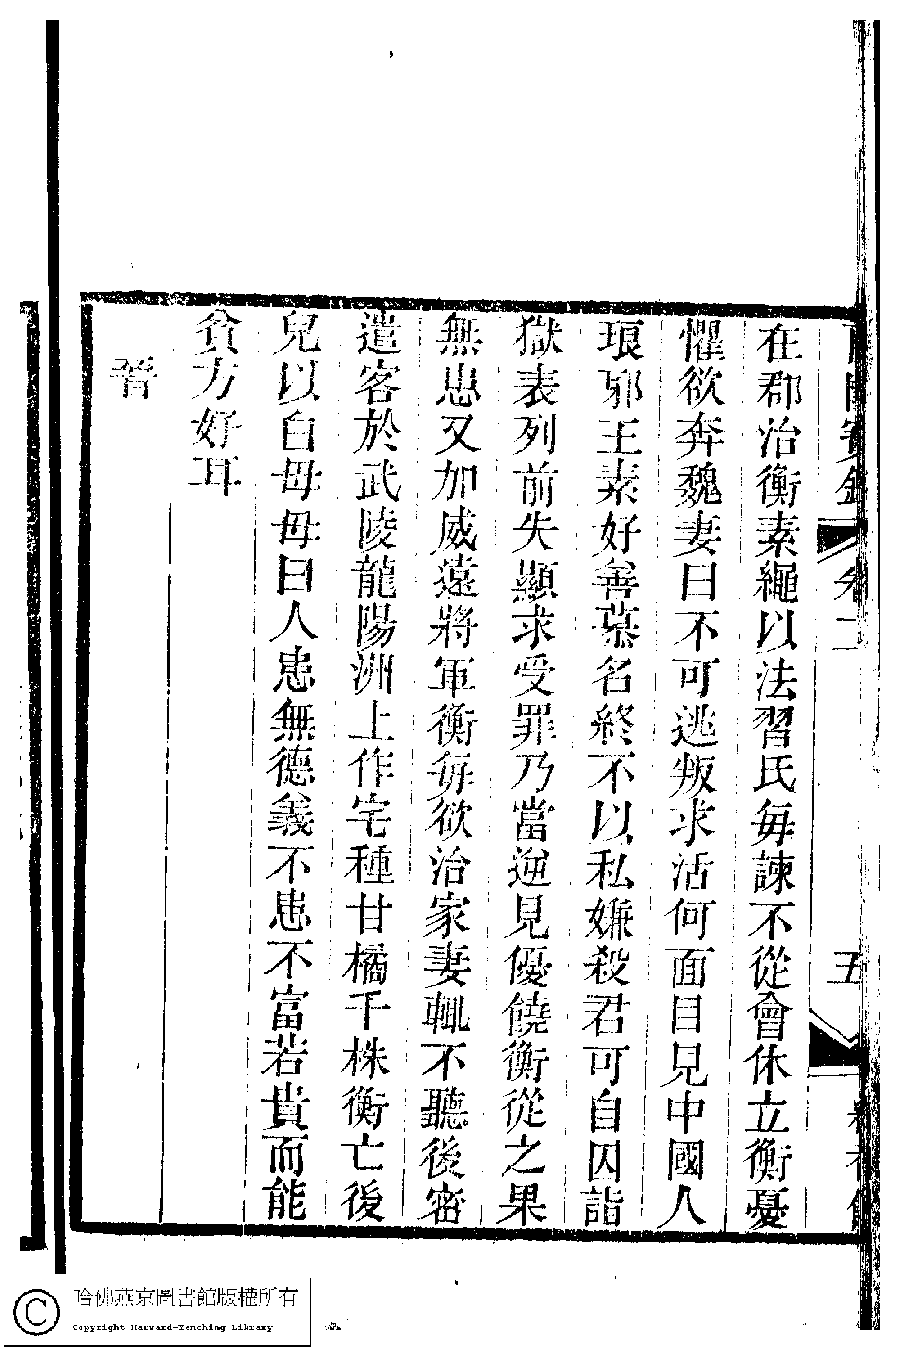 在郡治衡素繩以法習氏毎諫不從會休立衡憂
懼欲奔魏妻曰不可逃叛求活何面目見中國人
琅邪王素好善慕名終不以私嫌殺君可自囚詣
獄表列前失顯求受罪乃當逆見優饒衡從之果
無患又加威遠將軍衡毎欲治家妻輒不聽後密
遣客於武陵龍陽洲上作宅種甘橘千株衡亡後
兒以白母母曰人患無德義不患不富若貴而能
貧方好耳
晉
哈佛燕京圖書館版權所有
Copyright Harvard-Yenching Library